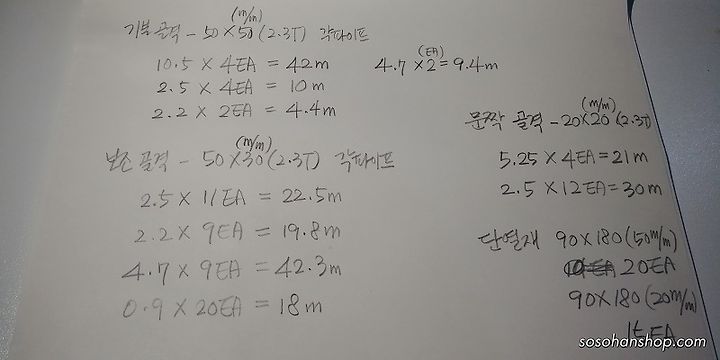 기본 골격 - 50×50(2.3T) 각파이프
(m/m)
10.5 × 4EA = 42m
2.5 × 4EA = 10m
2.2 × 2EA = 4.4m
4.7 ×2 = 9.4m
(EA)
보조 골격 - 50×30(2.3T) 각파이프
(m/m)
2.5 × 11EA = 22.5m
2.2 × 9EA = 19.8m
4.7 × 9EA = 42.3m
0.9 × 20EA = 18m
문짝 골격 - 20×20(2.3T)
(m/m)
5.25 × 4EA = 21m
2.5 × 12EA = 30m
단열재 90×180(50m/m)
20EA
90×180(20m/m)
EA
sosohanshop.com